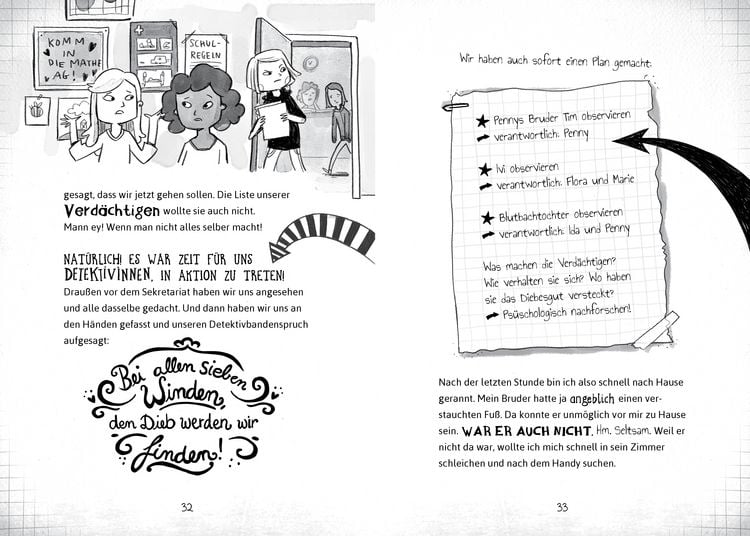 KOMM
IN
DIE MATHE
AG!
SCHUL-
REGELN
gesagt, dass wir jetzt gehen sollen. Die Liste unserer
Verdächtigen wollte sie auch nicht.
Mann ey! Wenn man nicht alles selber macht!
NATÜRLICH! ES WAR ZEIT FÜR UNS
DETEKTIVINNEN, IN AKTION ZU TRETEN!
Draußen vor dem Sekretariat haben wir uns angesehen
und alle dasselbe gedacht. Und dann haben wir uns an
den Händen gefasst und unseren Detektivbandenspruch
aufgesagt:
Bei allen sieben
Winden,
den Dieb werden wir
finden!
32
Wir haben auch sofort einen Plan gemacht:
Pennys Bruder Tim observieren
verantwortlich: Penny
Ivi observieren
verantwortlich: Flora und Marie
Blutbachtochter observieren
verantwortlich: Ida und Penny
Was machen die Verdächtigen?
Wie verhalten sie sich? Wo haben
sie das Diebesgut versteckt?
Psüschologisch nachforschen!
Nach der letzten Stunde bin ich also schnell nach Hause
gerannt. Mein Bruder hatte ja angeblich einen ver-
stauchten Fuß. Da konnte er unmöglich vor mir zu Hause
sein. WAR ER AUCH NICHT. Hm. Seltsam. Weil er
nicht da war, wollte ich mich schnell in sein Zimmer
schleichen und nach dem Handy suchen.
33